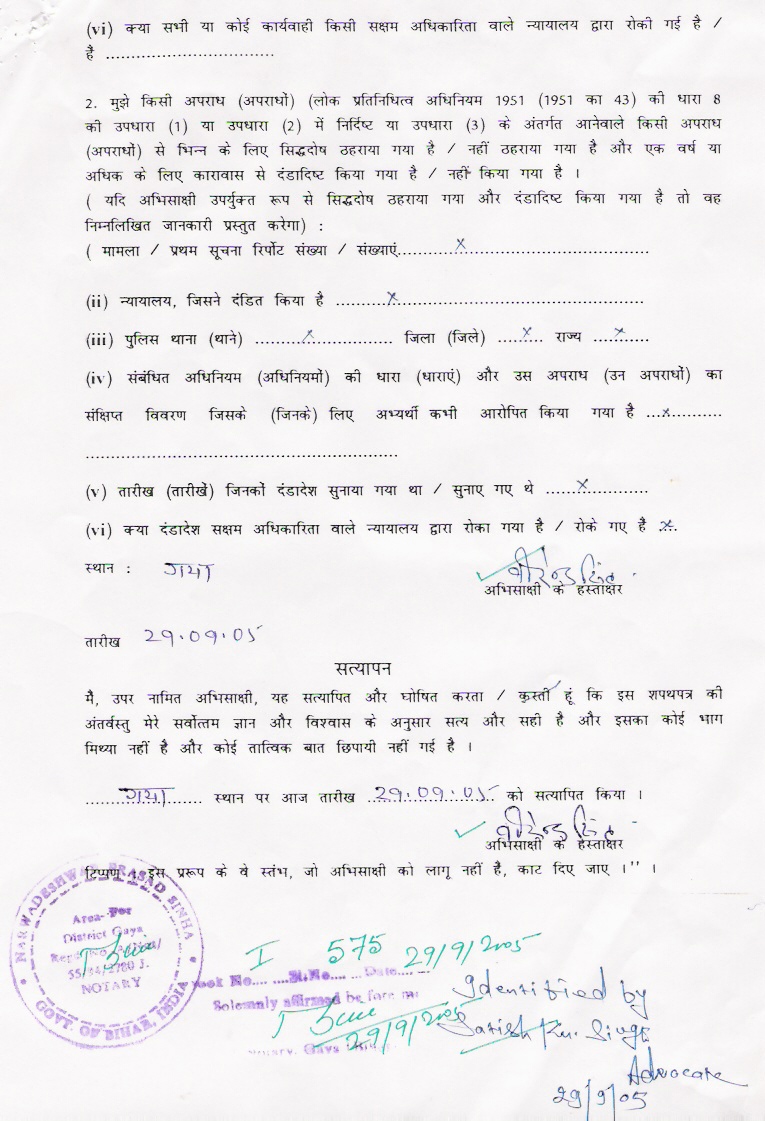 (vi) क्या सभी या कोई कार्यवाही किसी सक्षम अधिकारिता वाले न्यायालय द्वारा रोकी गई है /
है ................................
2. मुझे किसी अपराध (अपराधों) (लोक प्रतिनिधित्व अधिनियम 1951 (1951 का 43) की धारा 8
की उपधारा (1) या उपधारा (2) में निर्दिष्ट या उपधारा (3) के अंतर्गत आनेवाले किसी अपराध
(अपराधों) से भिन्न के लिए सिद्धदोष ठहराया गया है / नहीं ठहराया गया है और एक वर्ष या
अधिक के लिए कारावास से दंडादिष्ट किया गया है / नहीं किया गया है ।
( यदि अभिसाक्षी उपर्युक्त रूप से सिद्धदोष ठहराया गया और दंडादिष्ट किया गया है तो वह
निम्नलिखित जानकारी प्रस्तुत करेगा) :
( मामला / प्रथम सूचना रिर्पोट संख्या / संख्याएं............x...................................
(ii) न्यायालय, जिसने दंडित किया है ...........x...............................................
(iii) पुलिस थाना (थाने) ..........x............... जिला (जिले) .....x... राज्य ....x.....
(iv) संबंधित अधिनियम (अधिनियमों) की धारा (धाराएं) और उस अपराध (उन अपराधों) का
संक्षिप्त विवरण जिसके (जिनके) लिए अभ्यर्थी कभी आरोपित किया गया है ...x..........
............................................................
(v) तारीख (तारीखें) जिनकों दंडादेश सुनाया गया था / सुनाए गए थे ......x............
(vi) क्या दंडादेश सक्षम अधिकारिता वाले न्यायालय द्वारा रोका गया है / रोके गए हैं .x.
स्थान : गया
वीरेन्द्र सिंह
अभिसाक्षी के हस्ताक्षर
तारीख 29.09.05
सत्यापन
मै, उपर नामित अभिसाक्षी, यह सत्यापित और घोषित करता / करती हूं कि इस शपथपत्र की
अंतर्वस्तु मेरे सर्वोत्तम ज्ञान और विश्वास के अनुसार सत्य और सही है और इसका कोई भाग
मिथ्या नहीं है और कोई तात्विक बात छिपायी नहीं गई है ।
.......गया...... स्थान पर आज तारीख .29.09.05. को सत्यापित किया ।
वीरेन्द्र सिंह
अभिसाक्षी के हस्ताक्षर
टिप्पण : इस प्ररूप के वे स्तंभ, जो अभिसाक्षी को लागू नहीं है, काट दिए जाए ।'' ।
NARWADESHWAR PRASAD SINHA
Area-For
District Gaya
NOTARY
GOVT. OF BIHAR, INDIA
I 575 29/9/2005
Book No.... ....Sl.No.... ... Date.... ...
Solemnly affirmed before me
29/9/2005
Notary, Gaya
Identified by
Satish Kr. Singh
Advocate
29/9/05